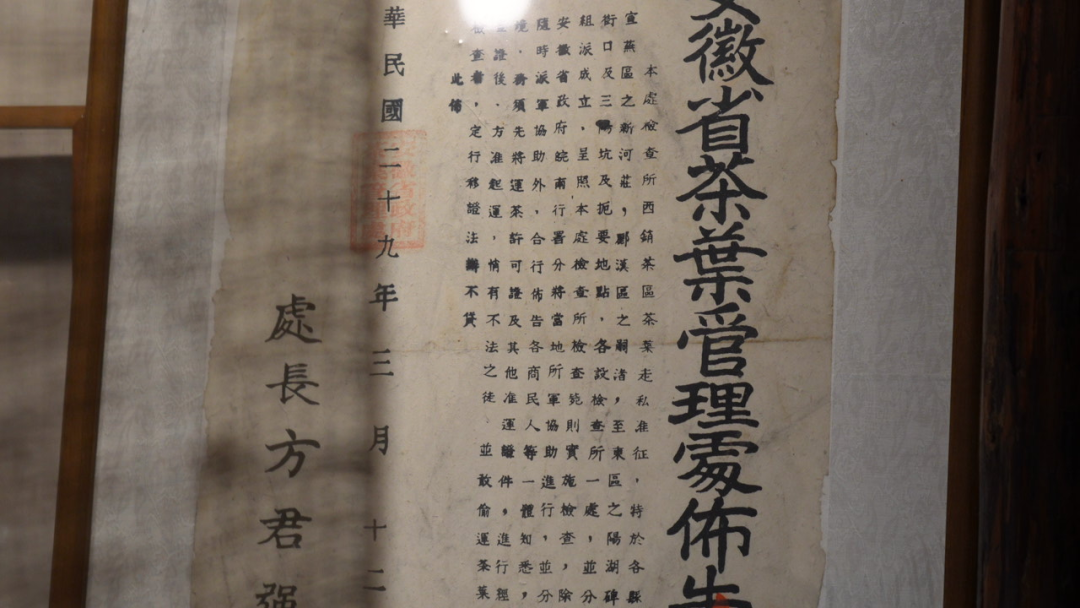 安徽省茶葉管理處佈告
本處檢查所西銷茶區茶葉走私准征，特於各縣
宣燕區之新河莊，郎漢區之 渚，至東區之陽湖碑
街口及三陽坑及扼要地點，各設檢查所一處，並分
組派成立，呈照本處檢查所檢查範則實施檢查，除
安徽省政府皖南行署分將當地所軍協助進行，並分
隨時派軍協助外，合行佈告各商民人等一體知悉，
境，務須先將運茶許可證及其他准運證件，進行經
證後，方准起運，倘有不法之徒並敢偷運茶葉
檢查者，定行移證法辦不貸
此佈
華民國二十九年三月十二
處長方君强